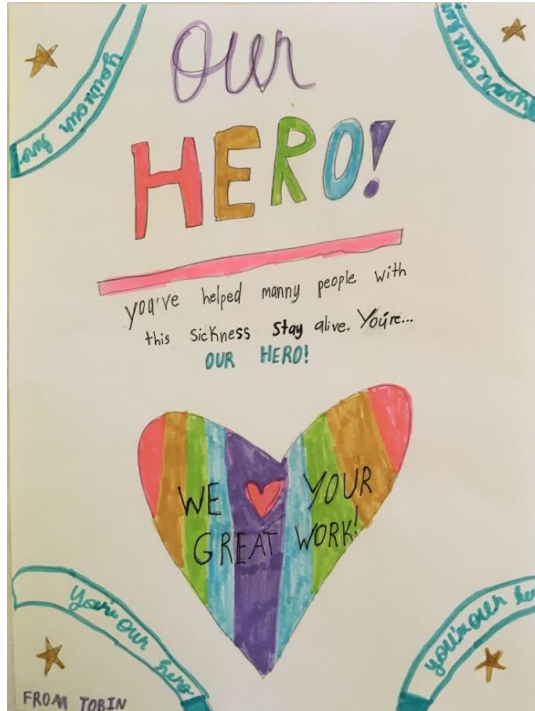 Our
HERO!
you're our hero
you're our hero
you've helped manny people with
this sickness stay alive. You're...
OUR HERO!
WE YOUR
GREAT WORK!
you're our hero
you're our hero
FROM TOBIN